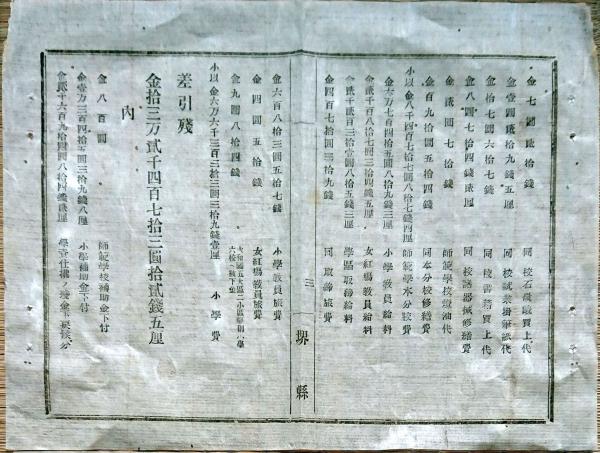 金七圓貳拾錢 同校石盤買上代
金壹圓貳拾九錢五厘 同校試業掛筆紙代
金拾七圓六拾錢 同校書籍買上代
金八圓七拾四錢貳厘 同校諸器械修繕費
金貳圓七拾錢 師範學校燈油代
金百九拾圓五拾四錢 同本分校修繕費
小以金八千四百七拾八圓八拾七錢四厘 師範學本分校費
金六万七百四拾五圓八拾九錢三厘 小學教員給料
金貳千百八拾七圓三拾四錢五厘 女紅場教員給料
金貳千貳百三拾壹圓八拾五錢三厘 學區取締給料
金四百七拾三圓五拾錢 同取締旅費
三 堺縣
金六百八拾三圓五拾七錢 小學教員旅費
金四圓五拾錢 女紅場教員旅費
金九圓八拾四錢
小以金六万六千三百三拾三圓三拾九錢壹厘 小學費
差引殘
金拾三万貳千四百七拾三圓拾貳錢五厘
內
金八百圓 師範學校補助金下付
金壹万三百四拾五圓三拾九錢八厘 小學補助金下付
金貳千六百九拾四圓八拾四錢貳厘